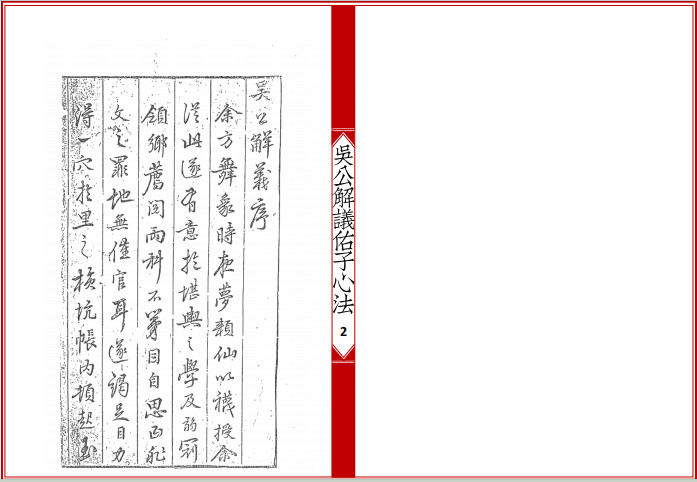 吳公解義序
余方舞象時夜夢類仙以襪授余
從此遂有意於堪輿之學及弱冠
領鄉薦閱兩科不第因自思
文之罪地無僅官耳遂謁足目力
得一穴於里之橫坑帳內頓起玉
吳公解議佑子心法
2